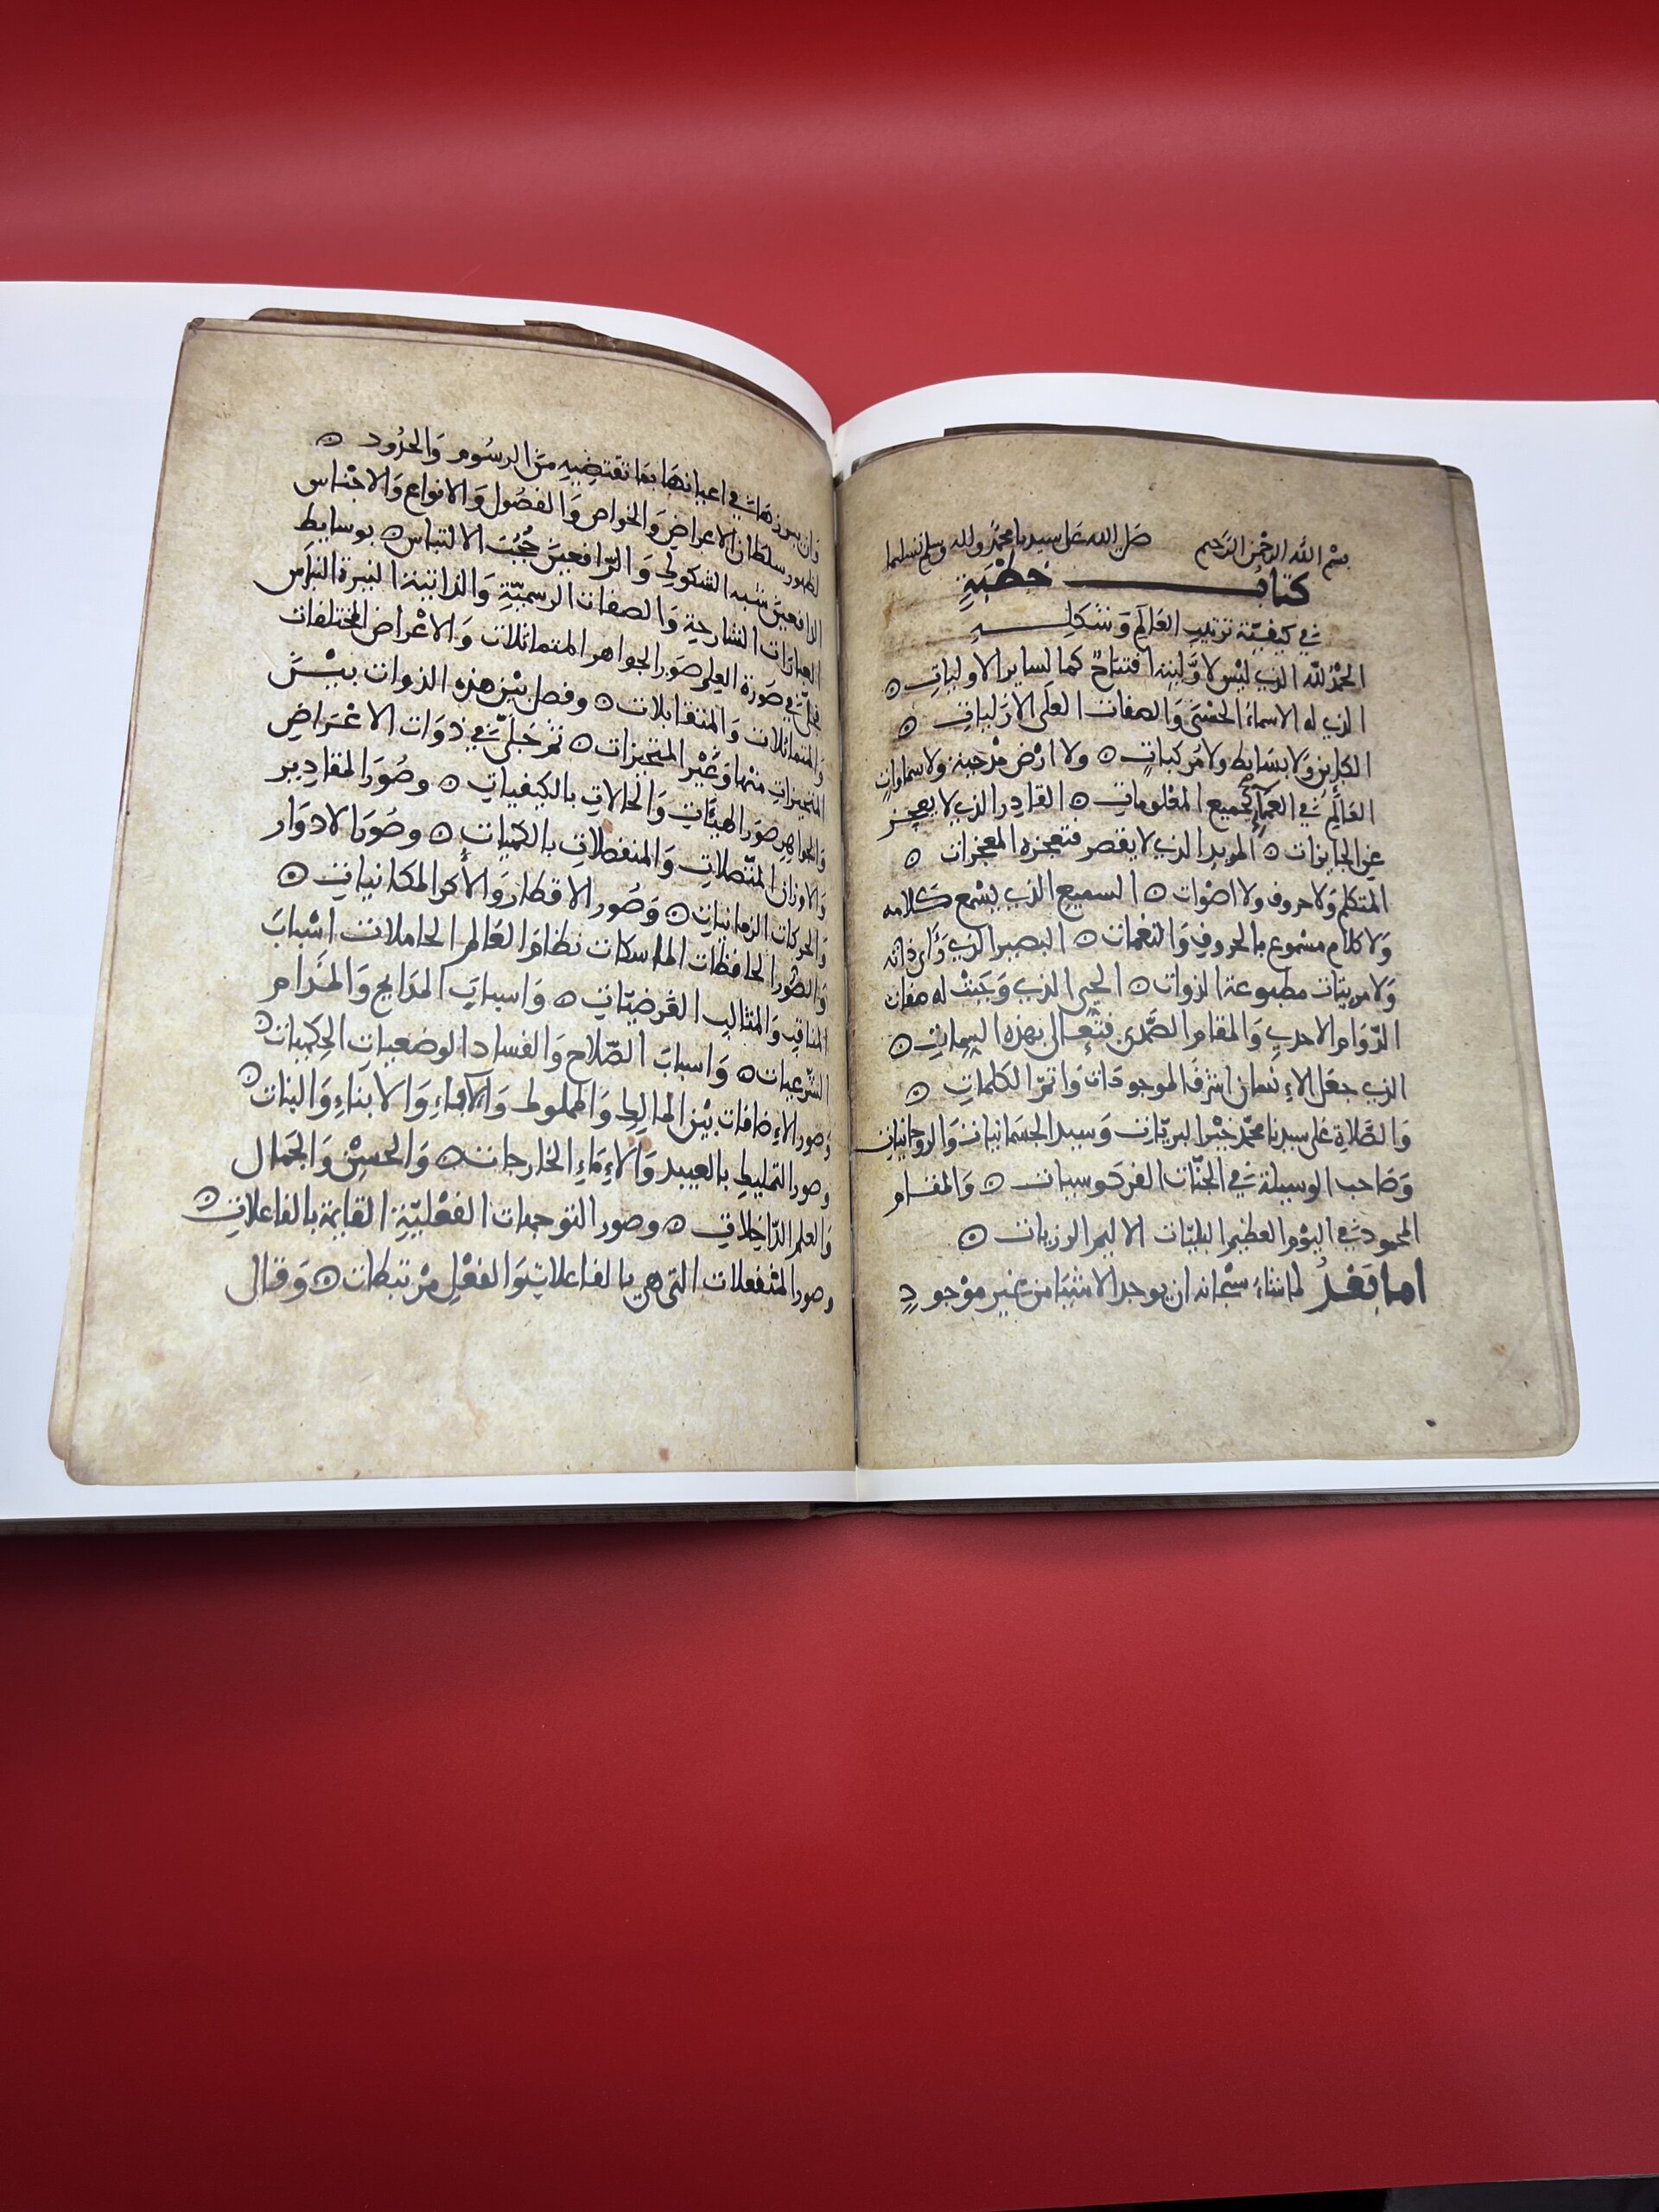 بسم الله الرحمن الرحيم صلى الله على سيدنا محمد واله وسلم تسليما
كتاب خطبة
في كيفية ترتيب العالم وشكله
الحمد لله الذي ليس لاوليته افتتاح كما لساير الاوليات ۞
الذي له الاسماء الحسنى والصفات العلى الازليات ۞
الكاين ولا بسايط ولا مركبات ۞ ولا ارض مدحية ولا سماوات
العالم في العماء بجميع المعلومات ۞ القادر الذي لا يعجز
عن الجايزات ۞ المريد الذي لا يقصر فتعجزه المعجزات ۞
المتكلم ولا حروف ولا اصوات ۞ السميع الذي يسمع كلامه
ولا كلام مسموع بالحروف والنغمات ۞ البصير الذي رأى ذاته
ولا مرييات مطبوعة الذوات ۞ الحي الذي وجبت له صفات
الدوام الاحدي والمقام الصمدي فتعالى بهذه السمات ۞
الذي جعل الإنسان اشرف الموجودات واتم الكلمات ۞
والصلاة على سيدنا محمد خير البريات وسيد الجسمانيات والروحانيات
وصاحب الوسيلة في الجنات الفردوسيات ۞ والمقام
المحمود في اليوم العظيم البليات الاليم الرزيات ۞
اما بعد لما شاء سبحانه ان يوجد الاشيا من غير موجود
وان يبرزها في اعيانها بما تقتضيه من الرسوم والحدود ۞
لظهور سلطان الاعراض والخواص والفصول والانواع والاجناس
الدافعين شبه الشكوك والرافعين حجب الالتباس ۞ بوسايط
العبارات الشارحة والصفات الرسمية والذاتية النيرة النبراس
فجلى في صورة العلم صور الجواهر المتماثلات والاعراض المختلفات
والمتماثلات والمتقابلات ۞ وفصل بين هذه الذوات بين
المتحيزات منها وغير المتحيزات ۞ ثم جلى في ذوات الاعراض
والجواهر صور الهيئات والحالات بالكيفيات ۞ وصور المقادير
والاوزان المتصلات والمنفصلات بالكميات ۞ وصور الادوار
والحركات الزمانيات ۞ وصور الاقطار والأكر المكانيات ۞
والصور الحافظات الماسكات نظام العالم الحاملات اسباب
المناقب والمثالب الغرضيات ۞ واسباب المدايح والمذام
الشرعيات ۞ واسباب الصلاح والفساد الوضعيات الحكميات ۞
وصور الإضافات بين المالك والمملوك والآباء والابناء والبنات ۞
وصور التمليك بالعبيد والإماء الخارجات ۞ والحسن والجمال
والعلم الداخلات ۞ وصور التوجهات الفعلية القايمة بالفاعلات ۞
وصور المنفعلات التي هي بالفاعلات والفعل مرتبطات ۞ وقال